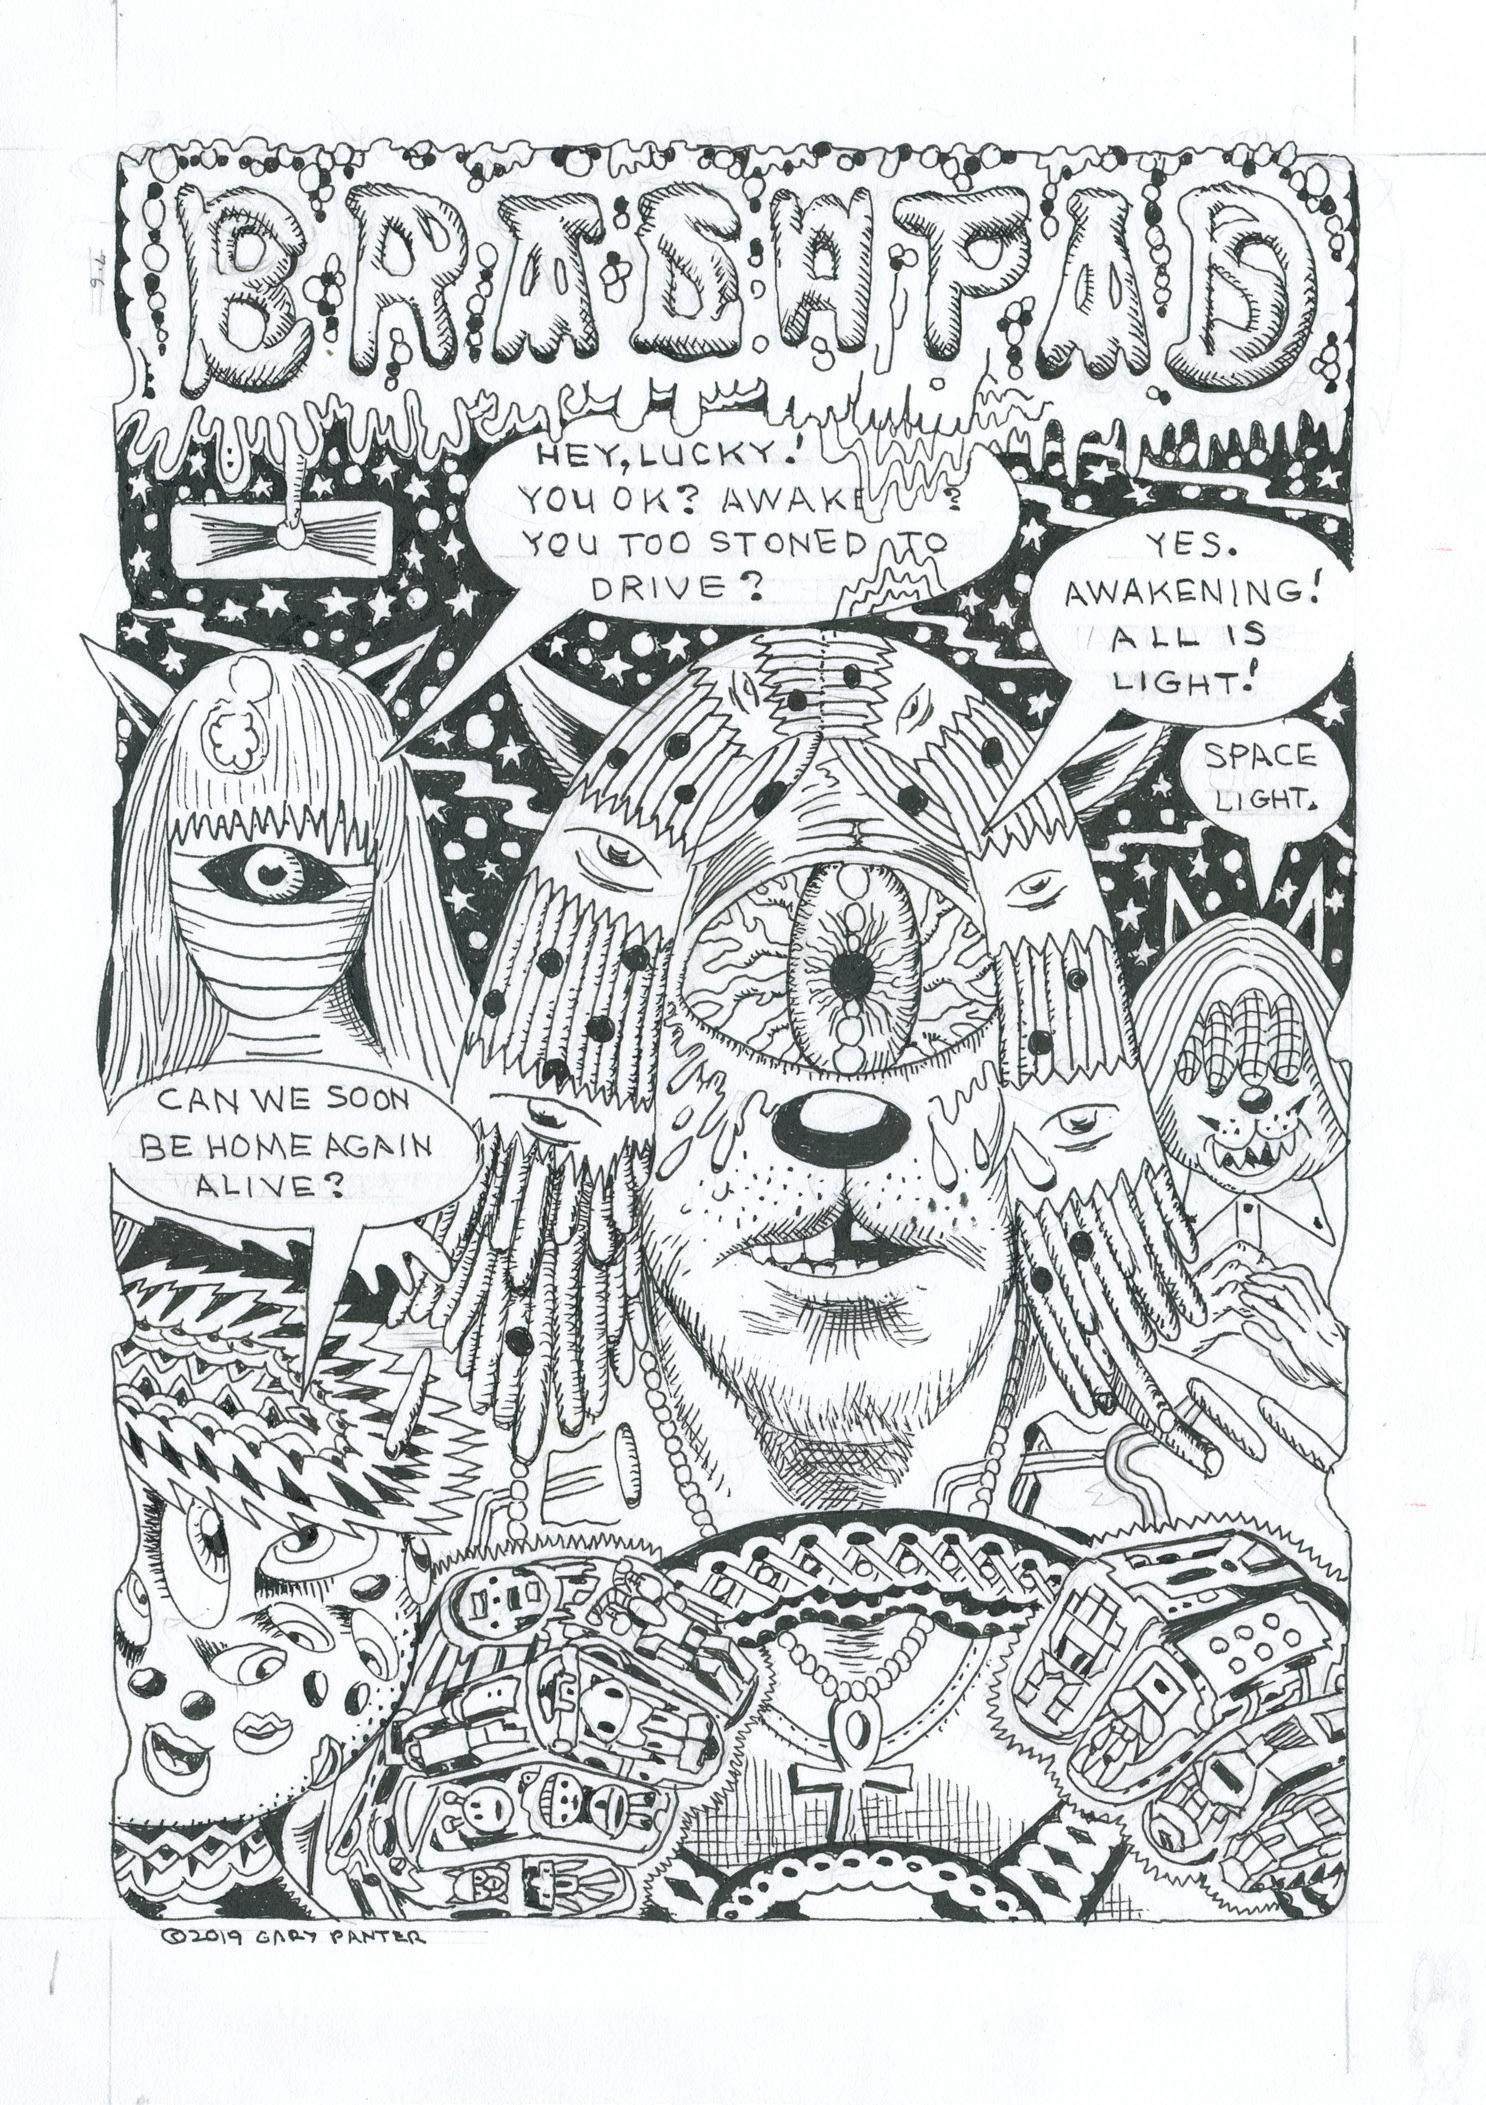 BRASHPAD
HEY, LUCKY!
YOU OK? AWAKE ?
YOU TOO STONED TO
DRIVE?
YES.
AWAKENING!
ALL IS
LIGHT!
SPACE
LIGHT.
CAN WE SOON
BE HOME AGAIN
ALIVE?
©2019 GARY PANTER